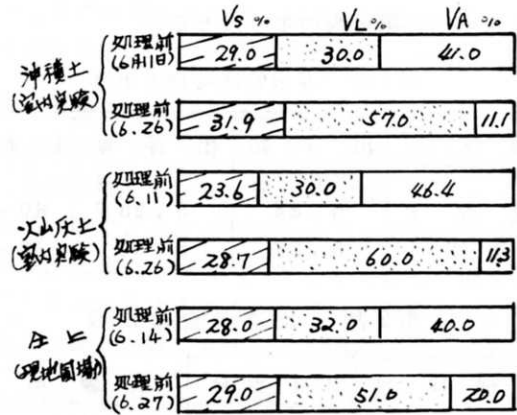 VS % VL % VA %
沖積土
(室内実験)
処理前
(6月11日)
29.0 30.0 41.0
処理前
(6.26)
31.9 57.0 11.1
火山灰土
(室内実験)
処理前
(6.11)
23.6 30.0 46.4
処理前
(6.26)
28.7 60.0 11.3
仝上
(現地圃場)
処理前
(6.14)
28.0 32.0 40.0
処理前
(6.27)
29.0 51.0 20.0